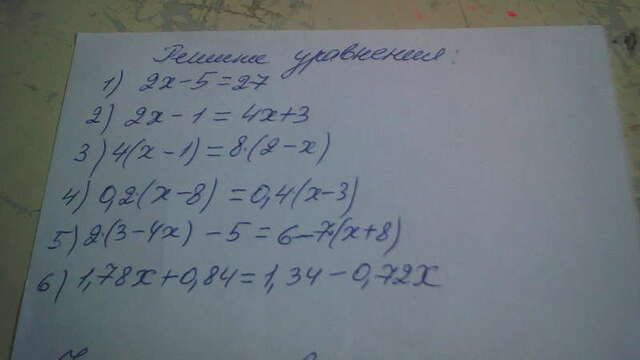 Решите уравнения:
1) 2x-5=27
2) 2x-1=4x+3
3) 4(x-1)=8·(2-x)
4) 0,2·(x-8)=0,4(x-3)
5) 2·(3-4x)-5=6-7·(x+8)
6) 1,78x+0,84=1,34-0,72x